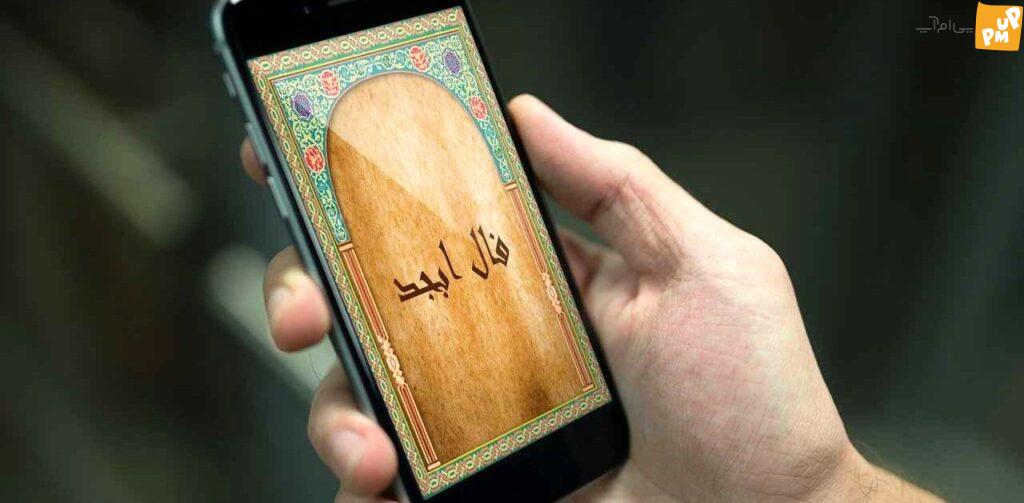 پی‌ام‌آپ
PMUP
فال ابجد